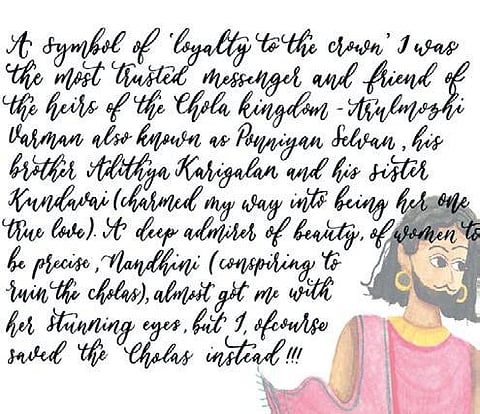 A symbol of 'loyalty to the crown' I was
the most trusted messenger and friend of
the heirs of the Chola kingdom - Arulmozhi
Varman also known as Ponniyan Selvan, his
brother Adithya Karigalan and his sister
Kundavai (charmed my way into being her one
true love). A deep admirer of beauty, of women to
be precise, Nandhini (conspiring to
ruin the cholas), almost got me with
her stunning eyes, but I, ofcourse
saved the Cholas instead!!!